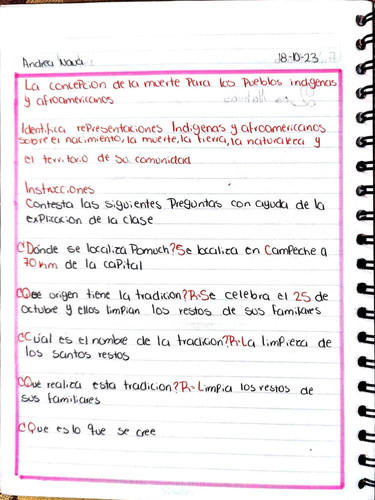 Andrea
18-10-23
La concepcion de la muerte Para los Pueblos indigenas
y afroamericanos
Identifica rePresentaciones Indigenas y afroamericanos
sobre el nacimiento, la muerte, la tierra, la naturaleza y
el territorio de su comunidad
Instrucciones
Contesta las siguientes Preguntas con ayuda de la
explicacion de la clase
¿Donde se localiza Pomuch? Se localiza en Campeche a
70 km de la capital
¿Que origen tiene la tradicion? R: Se celebra el 25 de
octubre y ellos limpian los restos de sus familiares
¿Cual es el nombre de la tradicion? R: La limpieza de
los santos restos
¿Que realiza esta tradicion? R= Limpia los restos de
sus familiares
¿Que es lo que se cree